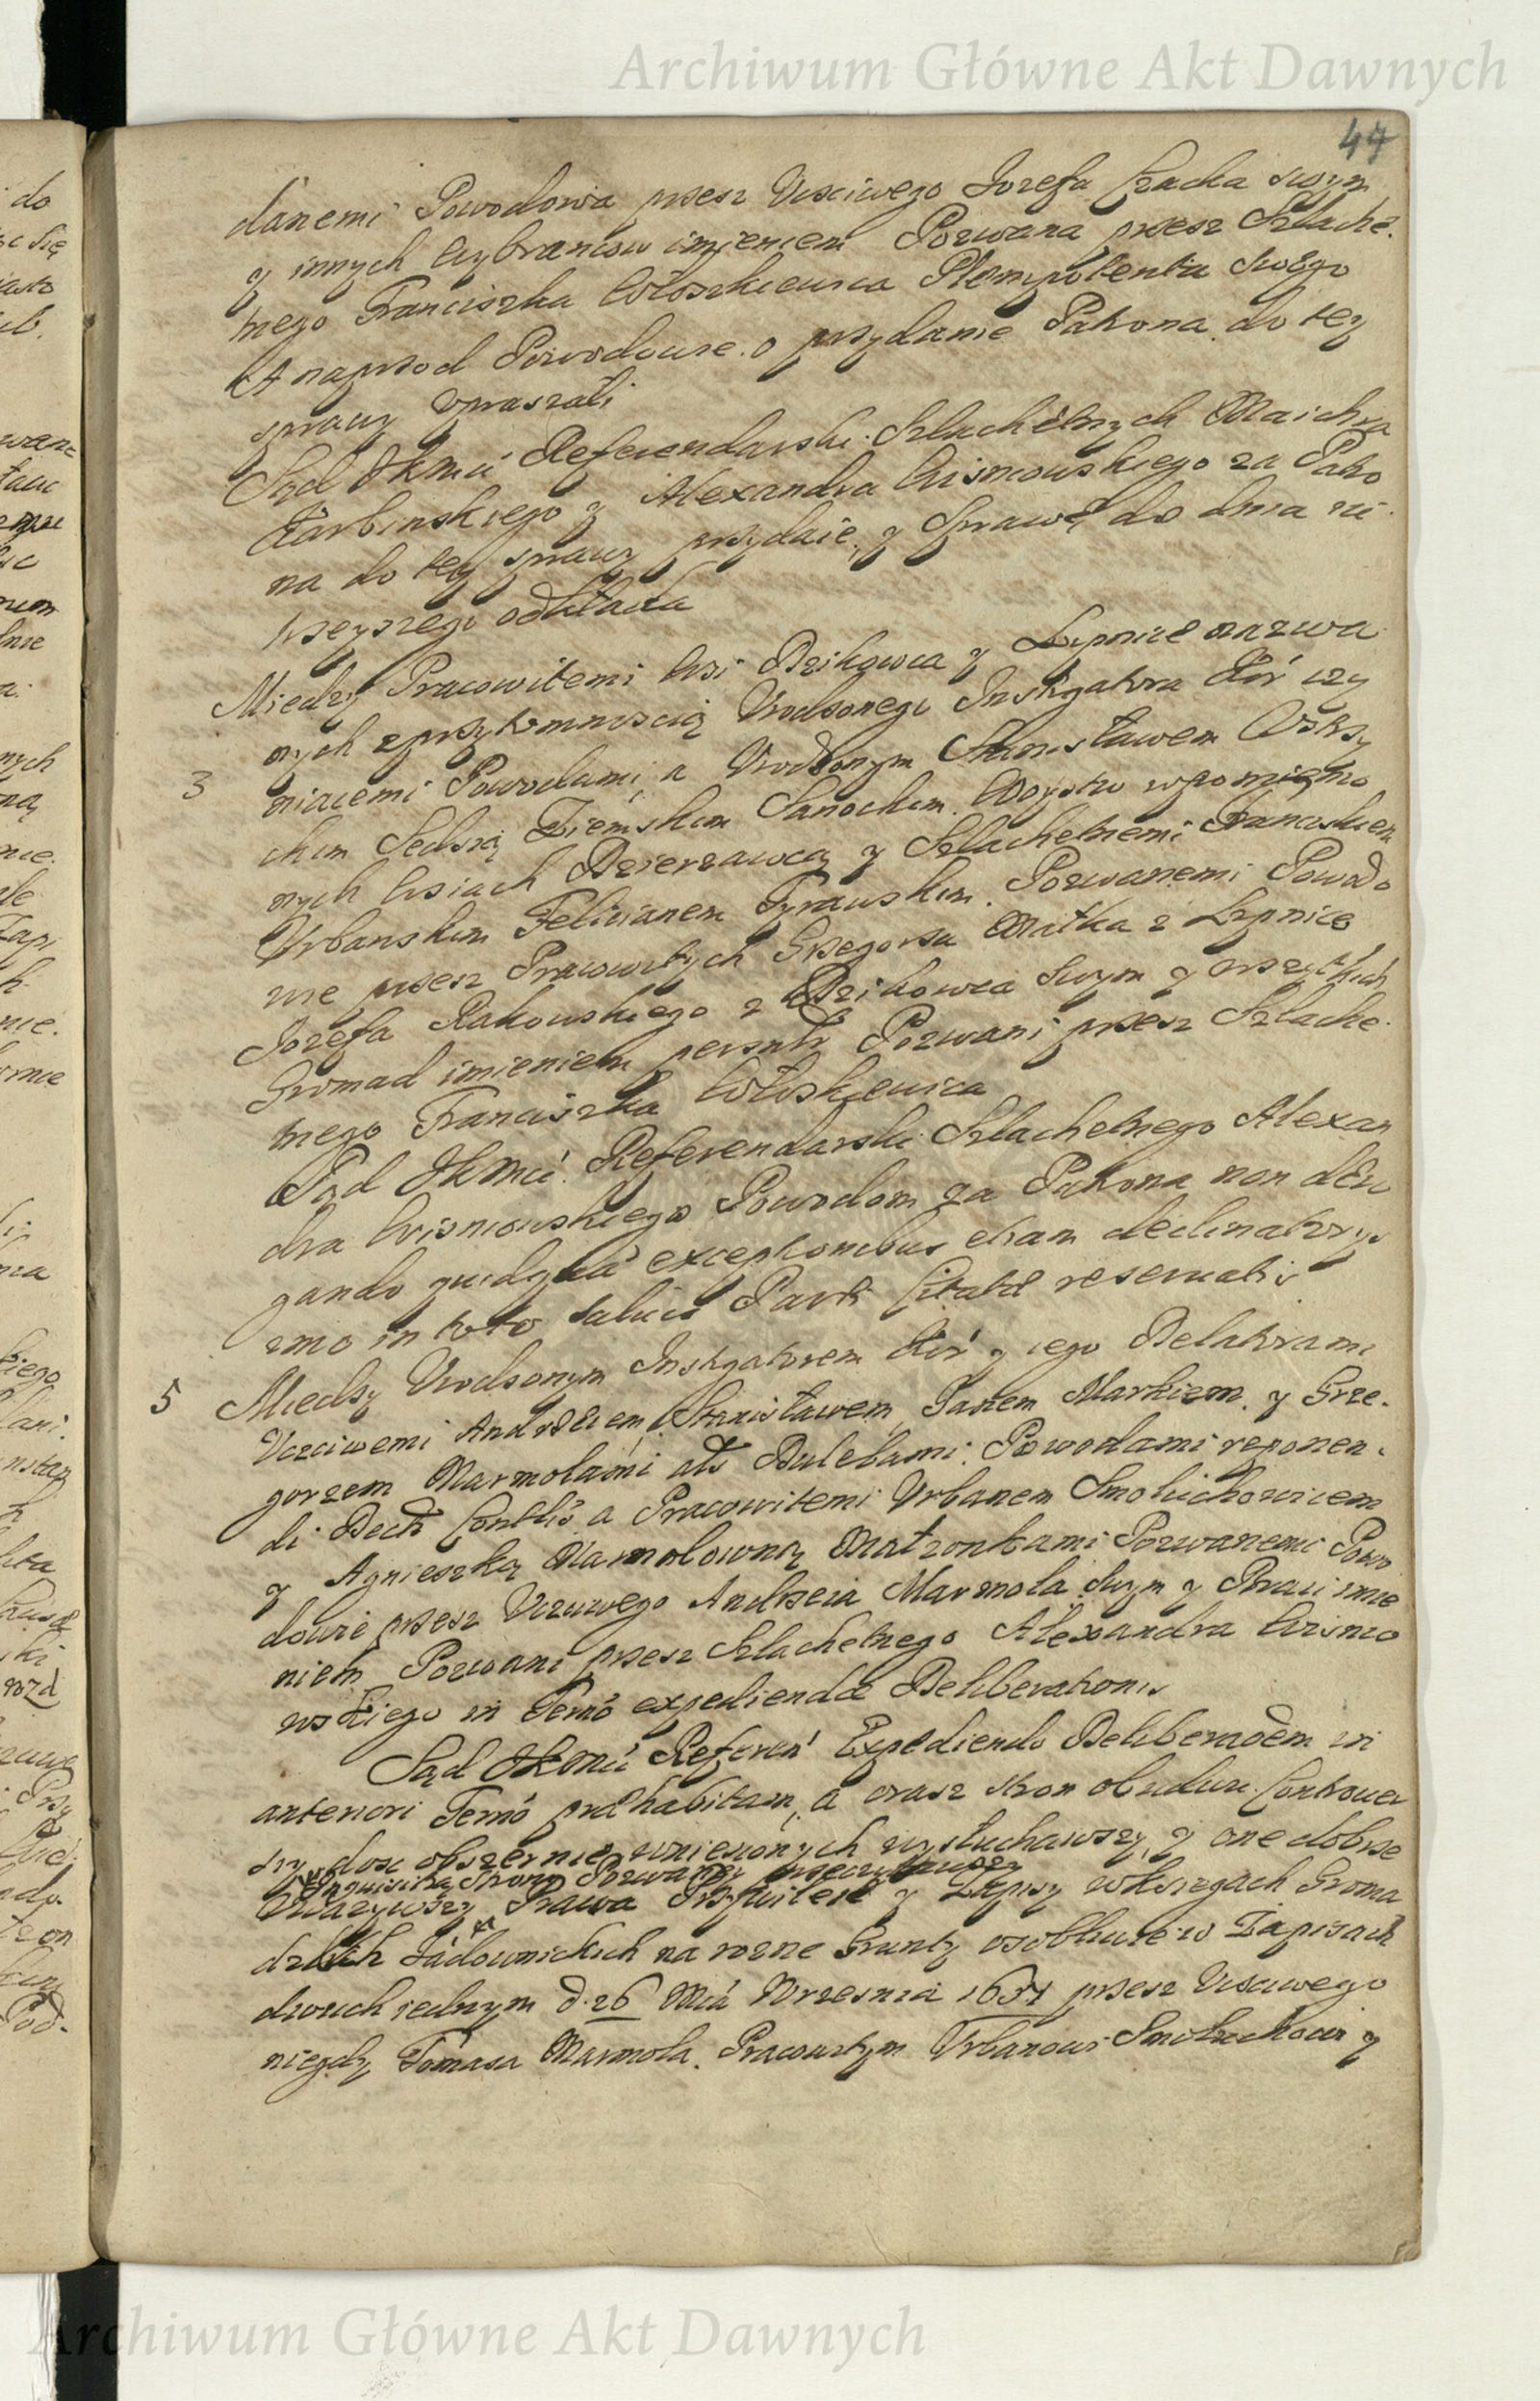 Archiwum Główne Akt Dawnych
47
danemi Powodowa przez Uczciwego Jozefa Czacha swym
y innych Wybrancow imieniem Pozwana przez Szlache.
tnego Franciszka Wołoszkiewica Plenipotenta swego
A naprzod Powodowie o przydanie Patrona do tey
sprawy vpraszali
Sąd JKMci Referendarski Szlachetnych Maichra
Garbinskiego y Alexandra Wisniowskiego za Patro
na do tey sprawy przydaie, y Sprawę do dnia iu
trzeyszego odkłada
Miedzy Pracowitemi Wsi Dzikowca y Lipnice nazwa
nych zprzytomnoscią Urodzonego Instygatora Kor czy
3
niącemi Powodami, a Urodzonym Stanisławem
chim Sedzią Ziemskim Sanockim Woysto wspomnio
nych Wsiach Dzierzawcą y Szlachetnemi Franciszkiem
Urbanskim Felicianem Tyrawskim. Pozwanemi Powodo
wie przez Pracowitych Grzegorza Matka z Lipnice
Jozefa Rakowskiego z Dzikowca swym y wszytkich
Gromad imieniem personlr Pozwani przez Szlache.
tnego Franciszka Wołoskiewica
Sąd JKMci Referendarski Szlachetnego Alexan
dra Wisniowskiego Powodom za Patrona non dero
gando quidquid exceptionibus etiam declinatorys
imo in toto salvis Parti Citatæ reservatis
5
Miedzy Urodzonym Instygatorem Kor y iego Delatorami
Uczciwemi Andrzeiem, Stanisławem, Janem Markiem y Grze.
gorzem Marmolami als Dulebami. Powodami reponen.
di Decti Contlis a Pracowitemi Vrbanem Smoluchowicem
y Agnieszką Marmolowną Małzonkami Pozwanemi Powo
dowie przez Uczciwego Andrzeia Marmola Swym y Braci imie
niem Pozwani przez Szlachetnego Alexandra Wisnio
wskiego in Termo expediendæ Deliberationis
Sąd JKMci Referen Expediendo Deliberaoem in
anteriori Termo præhabitam, a oraz stron obudwu Controwei
syy dosc obszernie wniesionych wysłuchawszy, y one dobrze
Inquisitią Strony Pozwaney przeczytawszy
Uwazywszy Prawa Przywileie y Zapisy wksięgach Groma
dzkich Sądownickich na rozne Grunty osobliwie w Zapisach
dwuch iednym d. 26 Mca Wrzesnia 1637 przez Uczciwego
niegdy Tomasa Marmola. Pracowitym Vrbanowi Smoluchowi y
Archiwum Główne Akt Dawnych